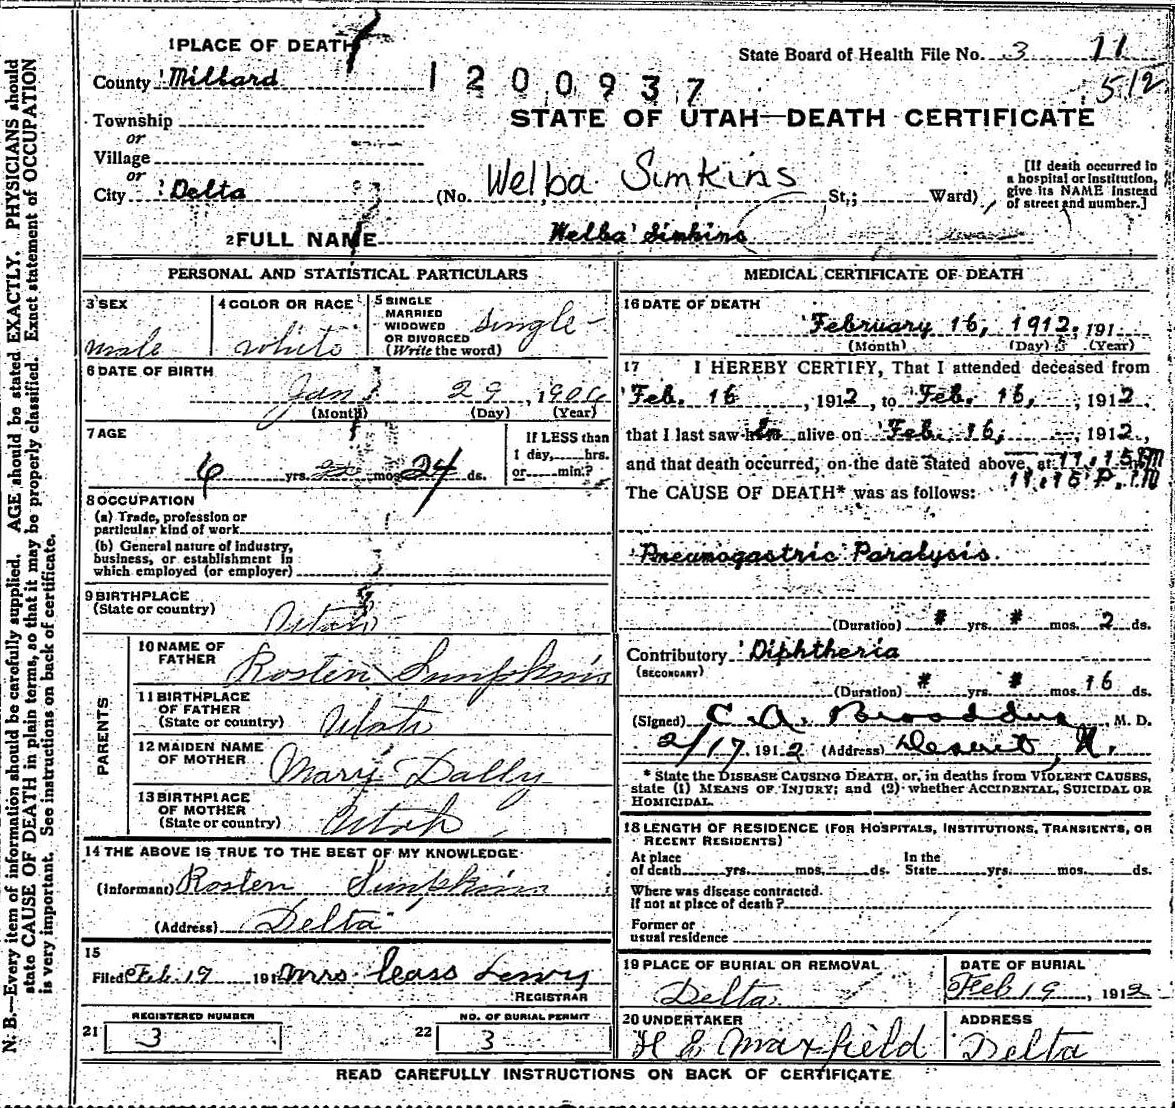 1 PLACE OF DEATH
State Board of Health File No. 3 11
County Millard
1200937
512
STATE OF UTAH—DEATH CERTIFICATE
Township
or
Village
or
City Delta
(No. Welba Simkins St,; Ward)
[If death occurred in
a hospital or institution,
give its NAME instead
of street and number.]
2 FULL NAME Welba Simkins
PERSONAL AND STATISTICAL PARTICULARS
3 SEX
male
4 COLOR OR RACE
white
5 SINGLE
MARRIED
WIDOWED
OR DIVORCED
(Write the word)
single
6 DATE OF BIRTH
Jan 29, 1906
(Month) (Day) (Year)
7 AGE
6 yrs. mos. 24 ds.
If LESS than
1 day, hrs.
or min.?
8 OCCUPATION
(a) Trade, profession or
particular kind of work
(b) General nature of industry,
business, or establishment in
which employed (or employer)
9 BIRTHPLACE
(State or country)
Utah
PARENTS
10 NAME OF
FATHER
Rosten Simpkins
11 BIRTHPLACE
OF FATHER
(State or country)
Utah
12 MAIDEN NAME
OF MOTHER
Mary Dally
13 BIRTHPLACE
OF MOTHER
(State or country)
Utah
14 THE ABOVE IS TRUE TO THE BEST OF MY KNOWLEDGE
(Informant) Rosten Simpkins
(Address) Delta
15
Filed Feb. 19 191 Mrs. Cass Lewry
REGISTRAR
21 REGISTERED NUMBER
3
22 NO. OF BURIAL PERMIT
3
MEDICAL CERTIFICATE OF DEATH
16 DATE OF DEATH
February 16, 1912, 191
(Month) (Day) (Year)
17 I HEREBY CERTIFY, That I attended deceased from
Feb. 16, 1912, to Feb. 16, 1912
that I last saw him alive on Feb. 16, 1912,
and that death occurred, on the date stated above, at 11.15 PM
11.15 P.M
The CAUSE OF DEATH* was as follows:
Pneumogastric Paralysis.
(Duration) # yrs. # mos. 2 ds.
Contributory Diphtheria
(SECONDARY)
(Duration) # yrs. # mos. 16 ds.
(Signed) C. A. Broaddus, M. D.
2/17 1912 (Address) Deseret, U.
* State the DISEASE CAUSING DEATH, or, in deaths from VIOLENT CAUSES,
state (1) MEANS OF INJURY; and (2) whether ACCIDENTAL, SUICIDAL OR
HOMICIDAL.
18 LENGTH OF RESIDENCE (FOR HOSPITALS, INSTITUTIONS, TRANSIENTS, OR
RECENT RESIDENTS)
At place
of death yrs. mos. ds.
In the
State yrs. mos. ds.
Where was disease contracted.
If not at place of death?
Former or
usual residence
19 PLACE OF BURIAL OR REMOVAL
Delta
DATE OF BURIAL
Feb 19, 1912
20 UNDERTAKER
H E Maxfield
ADDRESS
Delta
READ CAREFULLY INSTRUCTIONS ON BACK OF CERTIFICATE
N. B.—Every item of information should be carefully supplied. AGE should be stated EXACTLY. PHYSICIANS should
state CAUSE OF DEATH in plain terms, so that it may be properly classified. Exact statement of OCCUPATION
is very important. See instructions on back of certificate.